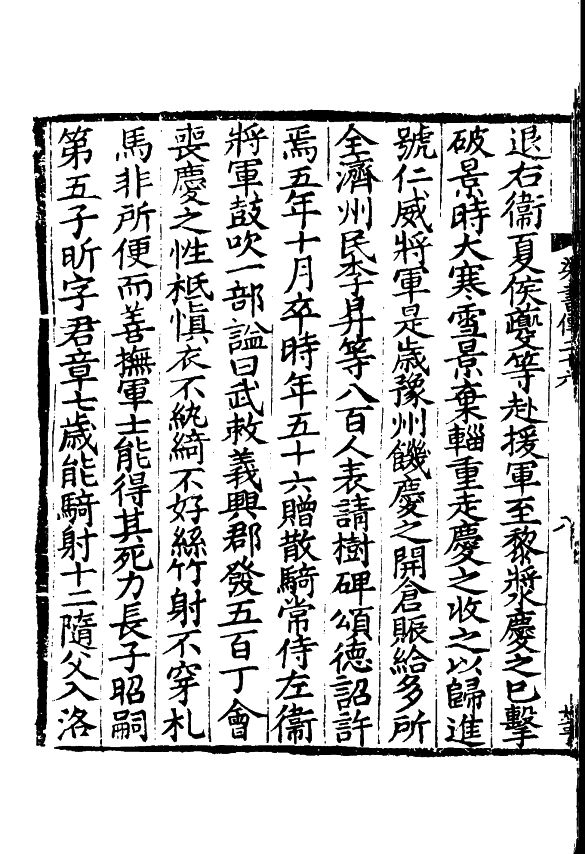 退右衞夏侯夔等赴援軍至黎漿慶之已擊
破景時大寒雪景棄輜重走慶之收之以歸進
號仁威將軍是歲豫州饑慶之開倉賑給多所
全濟州民李昇等八百人表請樹碑頌德詔許
焉五年十月卒時年五十六贈散騎常侍左衞
將軍鼓吹一部謚曰武敕義興郡發五百丁會
喪慶之性祗慎衣不紈綺不好絲竹射不穿札
馬非所便而善撫軍士能得其死力長子昭嗣
第五子昕字君章七歲能騎射十二隨父入洛